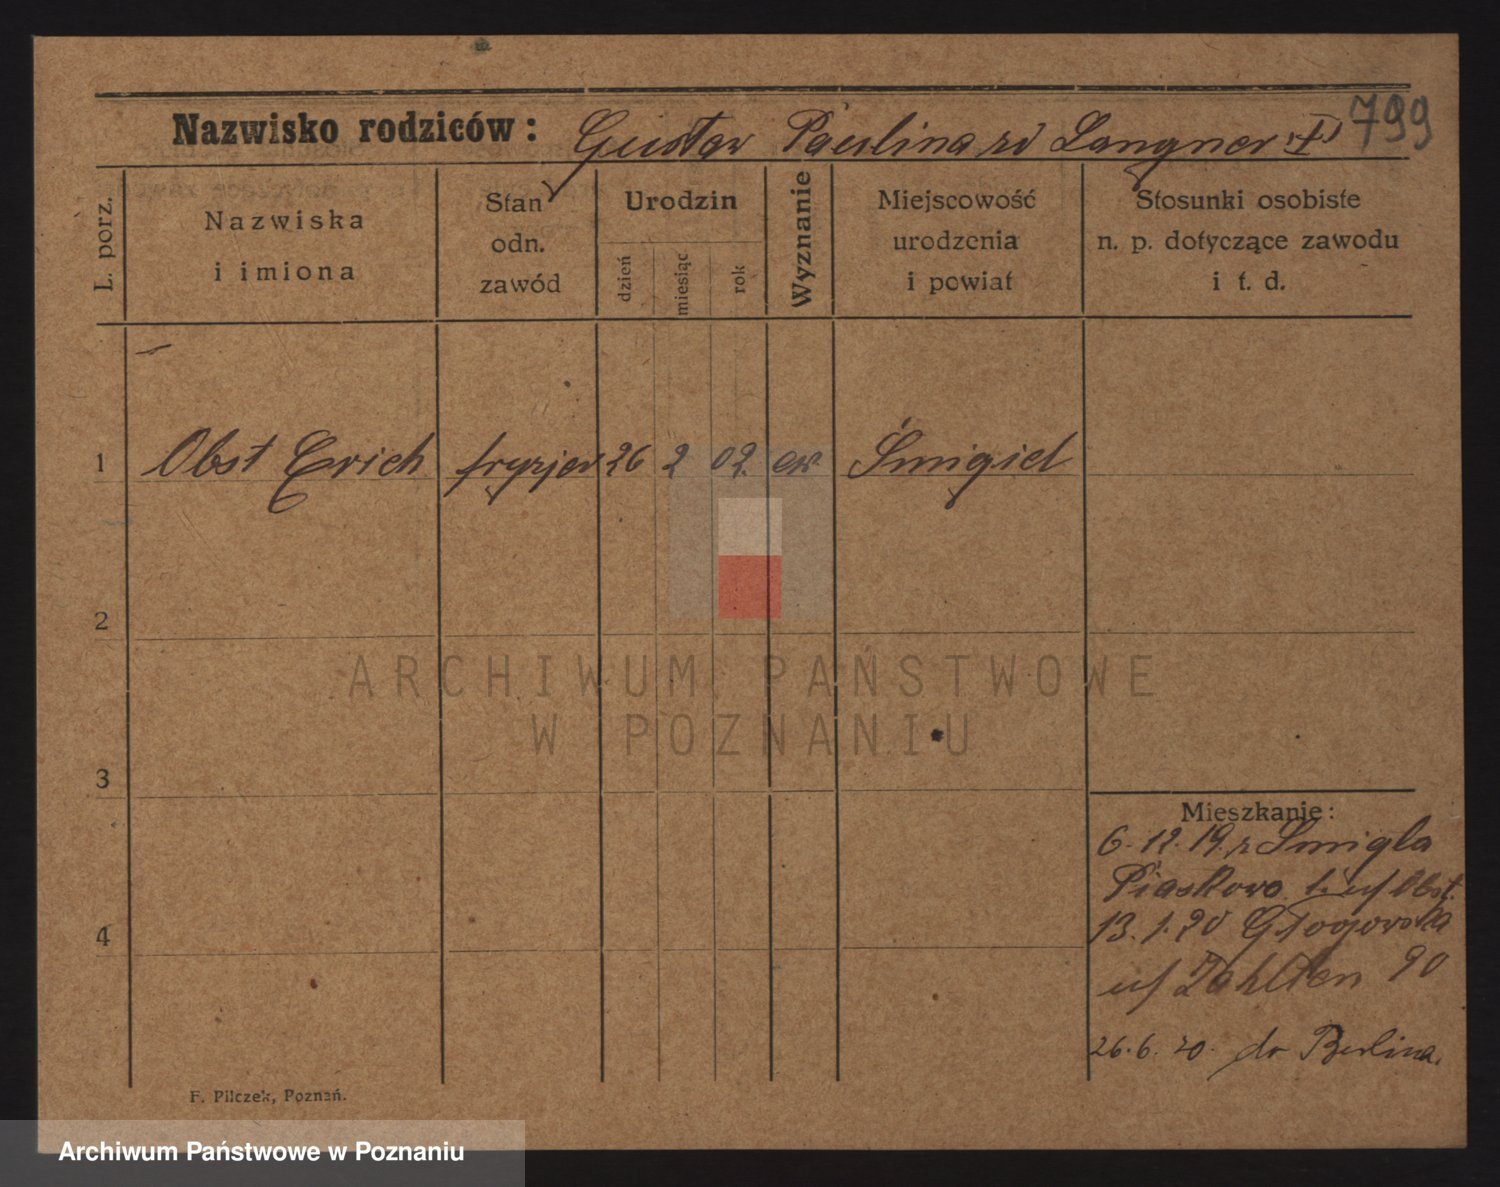 Nazwisko rodziców: Gustav Paulina zd Langner
799
L. porz.
Nazwiska
i imiona
Stan
odn.
zawód
Urodzin
dzień
miesiąc
rok
Wyznanie
Miejscowość
urodzenia
i powiat
Stosunki osobiste
n. p. dotyczące zawodu
i t. d.
1 Obst Erich fryzjer 26 2 02. ew. Śmigiel
2
3
4
Mieszkanie:
6.12.19. z Śmigla
Piaskowa 1. u/ Obst.
13.1.20 Głogowska
u/ 90
26.6.20. do Berlina.
F. Pilczek, Poznań.
ARCHIWUM PAŃSTWOWE
W POZNANIU
Archiwum Państwowe w Poznaniu